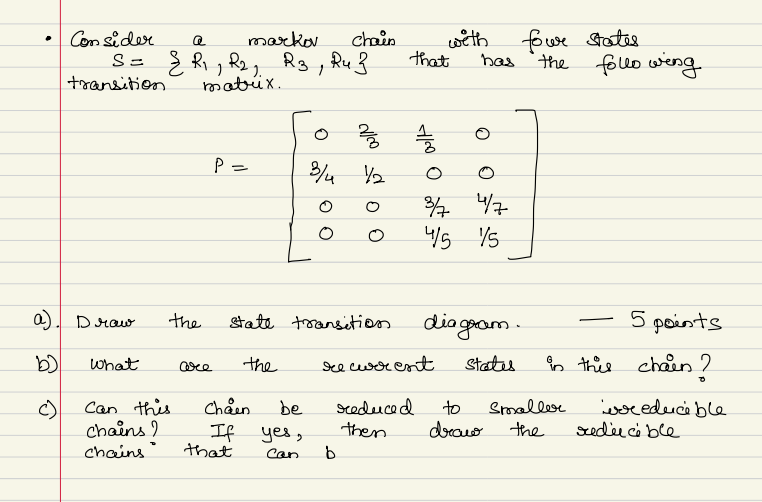 • Consider a markov chain with four states
S = { R1 , R2 , R3 , R4 } that has the following
transition matrix.
P = [ 0 2/3 1/3 0
3/4 1/2 0 0
0 0 3/7 4/7
0 0 4/5 1/5 ]
a). Draw the state transition diagram. — 5 points
b) What are the recurrent states in this chain?
c) Can this chain be reduced to smaller irreducible
chains? If yes, then draw the reducible
chains that can b